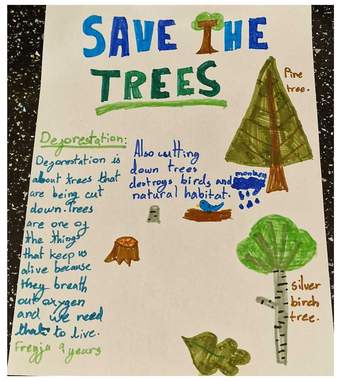 SAVE THE
TREES
Pine
tree.
Deforestation:
Deforestation is
about trees that
are being cut
down. Trees
are one of
the things
that keep us
alive because
they breath
out oxygen
and we need
that to live.
Freyja 9 years
Also cutting
down trees
destroys birds and
natural habitat.
silver
birch
tree.